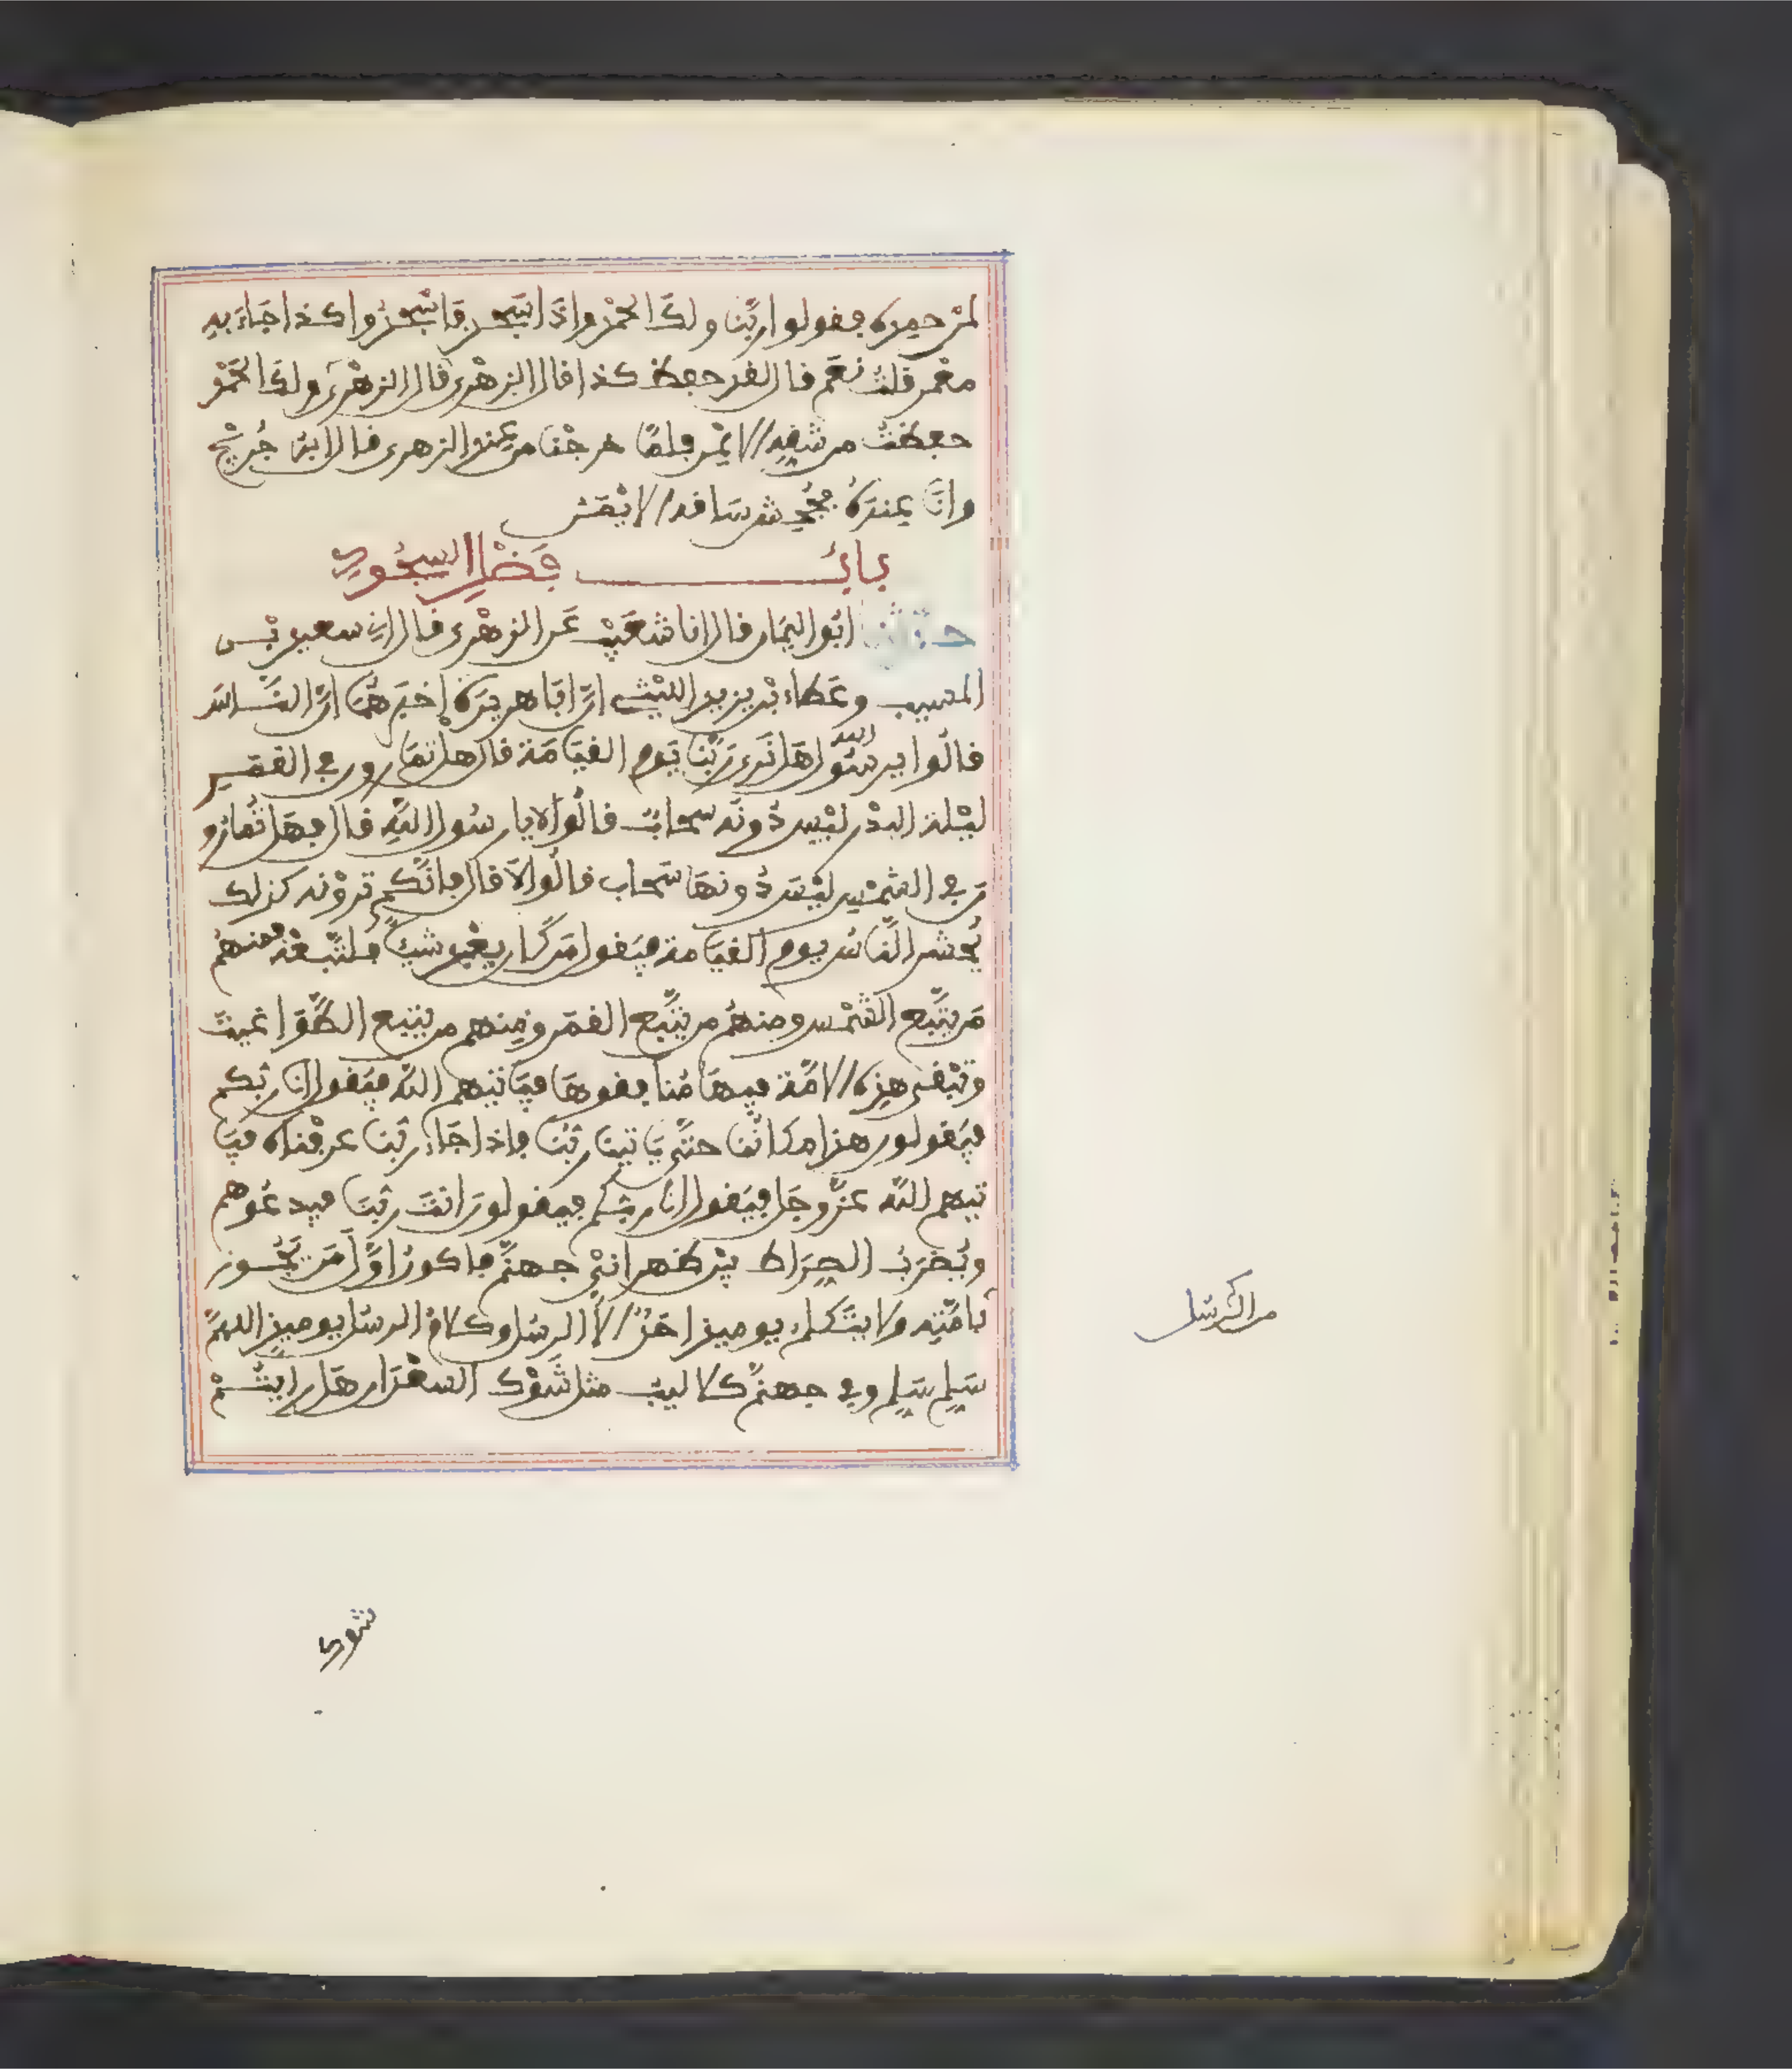 لمن حمده فقولوا ربنا ولك الحمد واذا سجد فاسجدوا كذا جاء به
معمر قلت نعم قال لقد حفظ كذا قال الزهري قال الزهري ولك الحمد
حفظت من شقه الايمن فلما خرجنا من عند الزهري قال ابن جريج
وانا عنده فجحش ساقه الايمن
باب فضل السجود
حدثنا ابو اليمان قال انا شعيب عن الزهري قال اني سعيد بن
المسيب وعطاء بن يزيد الليثي ان ابا هريرة اخبرهما ان الناس
قالوا يرسول الله هل نرى ربنا يوم القيامة قال هل تمارون في القمر
ليلة البدر ليس دونه سحاب قالوا لا يا رسول الله قال فهل تمارو
ن في الشمس ليس دونها سحاب قالوا لا قال فانكم ترونه كذلك
يحشر الناس يوم القيامة فيقول من كان يعبد شيئا فليتبعه فمنهم
من يتبع الشمس ومنهم من يتبع القمر ومنهم من يتبع الطواغيت
وتبقى هذه الامة فيها منافقوها فياتيهم الله فيقول انا ربكم
فيقولون هذا مكاننا حتى ياتينا ربنا فاذا جاء ربنا عرفناه فيا
تيهم الله عز وجل فيقول انا ربكم فيقولون انت ربنا فيدعوهم
ويضرب الصراط بين ظهراني جهنم فاكون اول من يجوز
بامته ولا يتكلم يوميذ احد الا الرسل وكلام الرسل يوميذ اللهم
سلم سلم وفي جهنم كلاليب مثل شوك السعدان هل رايتم
من الرسل
شوك